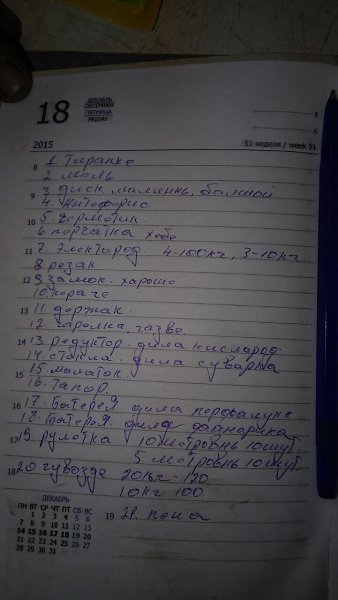 18
ДЕКАБРЬ
DECEMBER
ПЯТНИЦА
FRIDAY
2015
51 неделя / week 51
8 1. Тиранке
2 моль
9 3. диск маминкь, балшой
4. Антефорис
10 5. Гермотик.
6 перватка хобе
11 7. Электирод. 4-100кг, 3-10кг
8 резак
12 9. замок. хароше
10. караче
13 11. держак.
12. гаролка, газве.
14 13. редуктор. дила кисларод.
14. стокла дила сварка
15 15. малаток.
16. Тапор.
16 17. Батерея дила перфалупе
18. Батерея дила фанарика
17 19. рулотка 10 метровнь 10шут.
5 метровнь 10шут.
18 20 гувозде 20кг-120
10кг 100
19 21. пена
ДЕКАБРЬ
ПН ВТ СР ЧТ ПТ СБ ВС
1 2 3 4 5 6
7 8 9 10 11 12 13
14 15 16 17 18 19 20
21 22 23 24 25 26 27
28 29 30 31